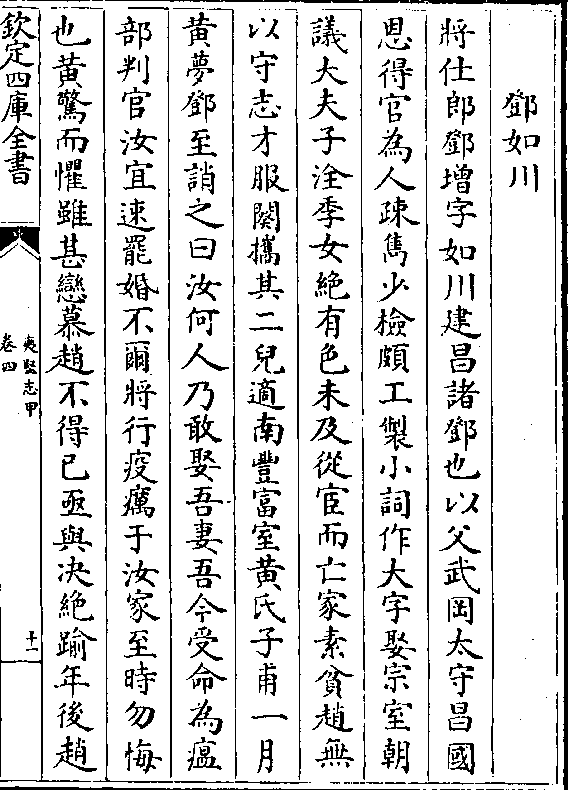 鄧如川
將仕郎鄧增字如川建昌諸鄧也以父武岡太守昌國
恩得官為人疎雋少檢頗工製小詞作大字娶宗室朝
議大夫子淦季女絶有色未及從宦而亡家素貧趙無
以守志才服闋攜其二兒適南豐富室黄氏子甫一月
黄夢鄧至誚之曰汝何人乃敢娶吾妻吾今受命為瘟
部判官汝宜速罷婚不爾將行疫癘于汝家至時勿悔
也黄驚而懼雖甚戀慕趙不得已亟與决絶踰年後趙
欽定四庫全書
夷堅志甲
卷四
十一